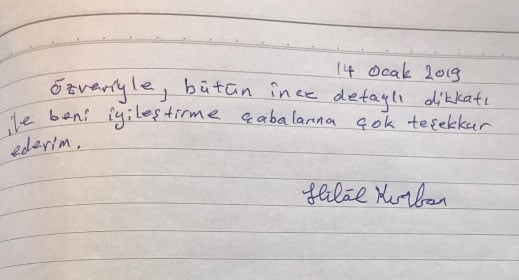 14 Ocak 2019
özveriyle, bütün ince detaylı dikkati
ile beni iyileştirme çabalarına çok teşekkur
ederim.
Hilâl Kurban